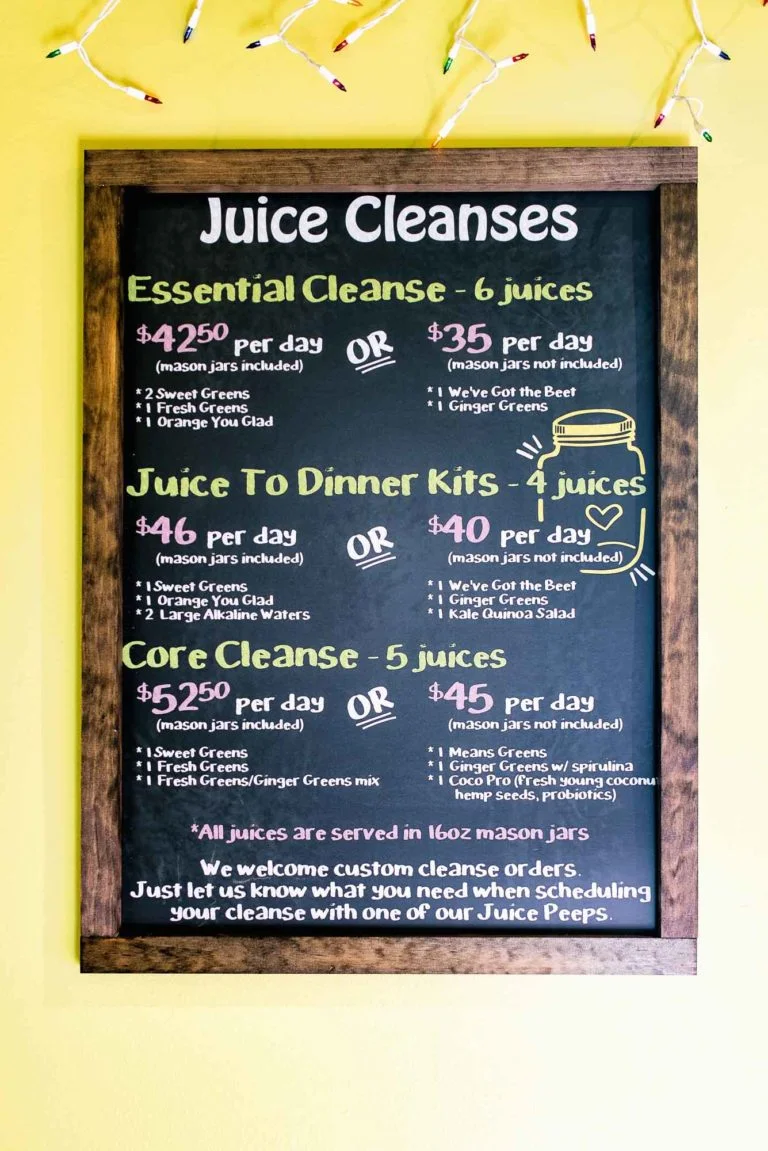 Juice Cleanses
Essential Cleanse - 6 juices
$42⁵⁰ per day
(mason jars included)
OR
$35 per day
(mason jars not included)
* 2 Sweet Greens
* 1 Fresh Greens
* 1 Orange You Glad
* 1 We've Got the Beet
* 1 Ginger Greens
Juice To Dinner Kits - 4 juices
$46 per day
(mason jars included)
OR
$40 per day
(mason jars not included)
* 1 Sweet Greens
* 1 Orange You Glad
* 2 Large Alkaline Waters
* 1 We've Got the Beet
* 1 Ginger Greens
* 1 Kale Quinoa Salad
Core Cleanse - 5 juices
$52⁵⁰ per day
(mason jars included)
OR
$45 per day
(mason jars not included)
* 1 Sweet Greens
* 1 Fresh Greens
* 1 Fresh Greens/Ginger Greens mix
* 1 Means Greens
* 1 Ginger Greens w/ spirulina
* 1 Coco Pro (fresh young coconu
hemp seeds, probiotics)
*All juices are served in 16oz mason jars
We welcome custom cleanse orders.
Just let us know what you need when scheduling
your cleanse with one of our Juice Peeps.